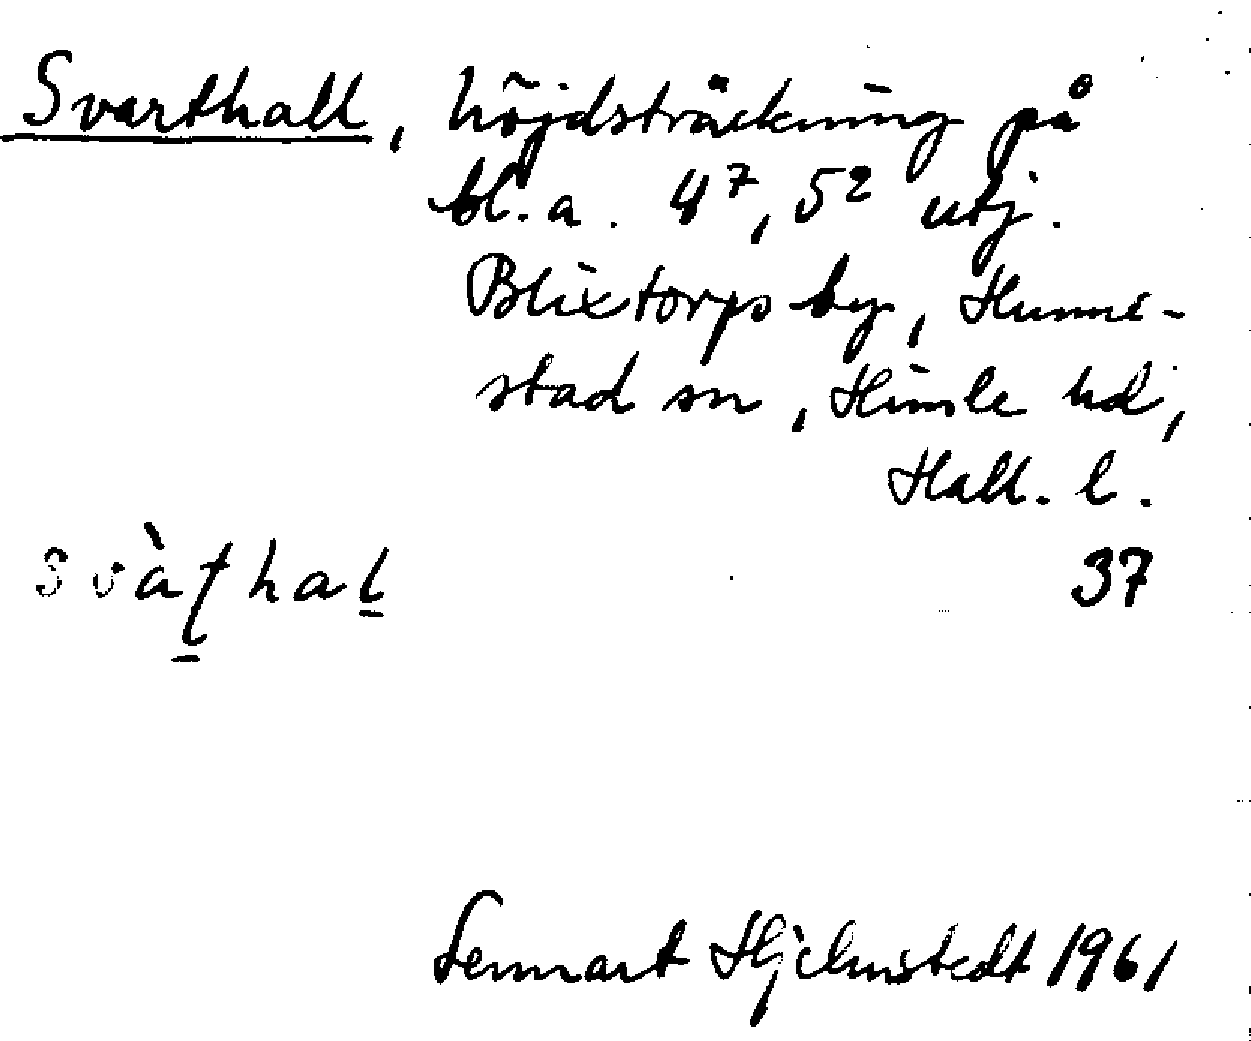 Svarthall, höjdsträckning på
bl.a. 4⁷, 5² utj.
Blixtorps by, Hunne-
stad sn, Himle hd,
Hall. l.
svàʈhal̲ 37
Lennart Hjelmstedt 1961